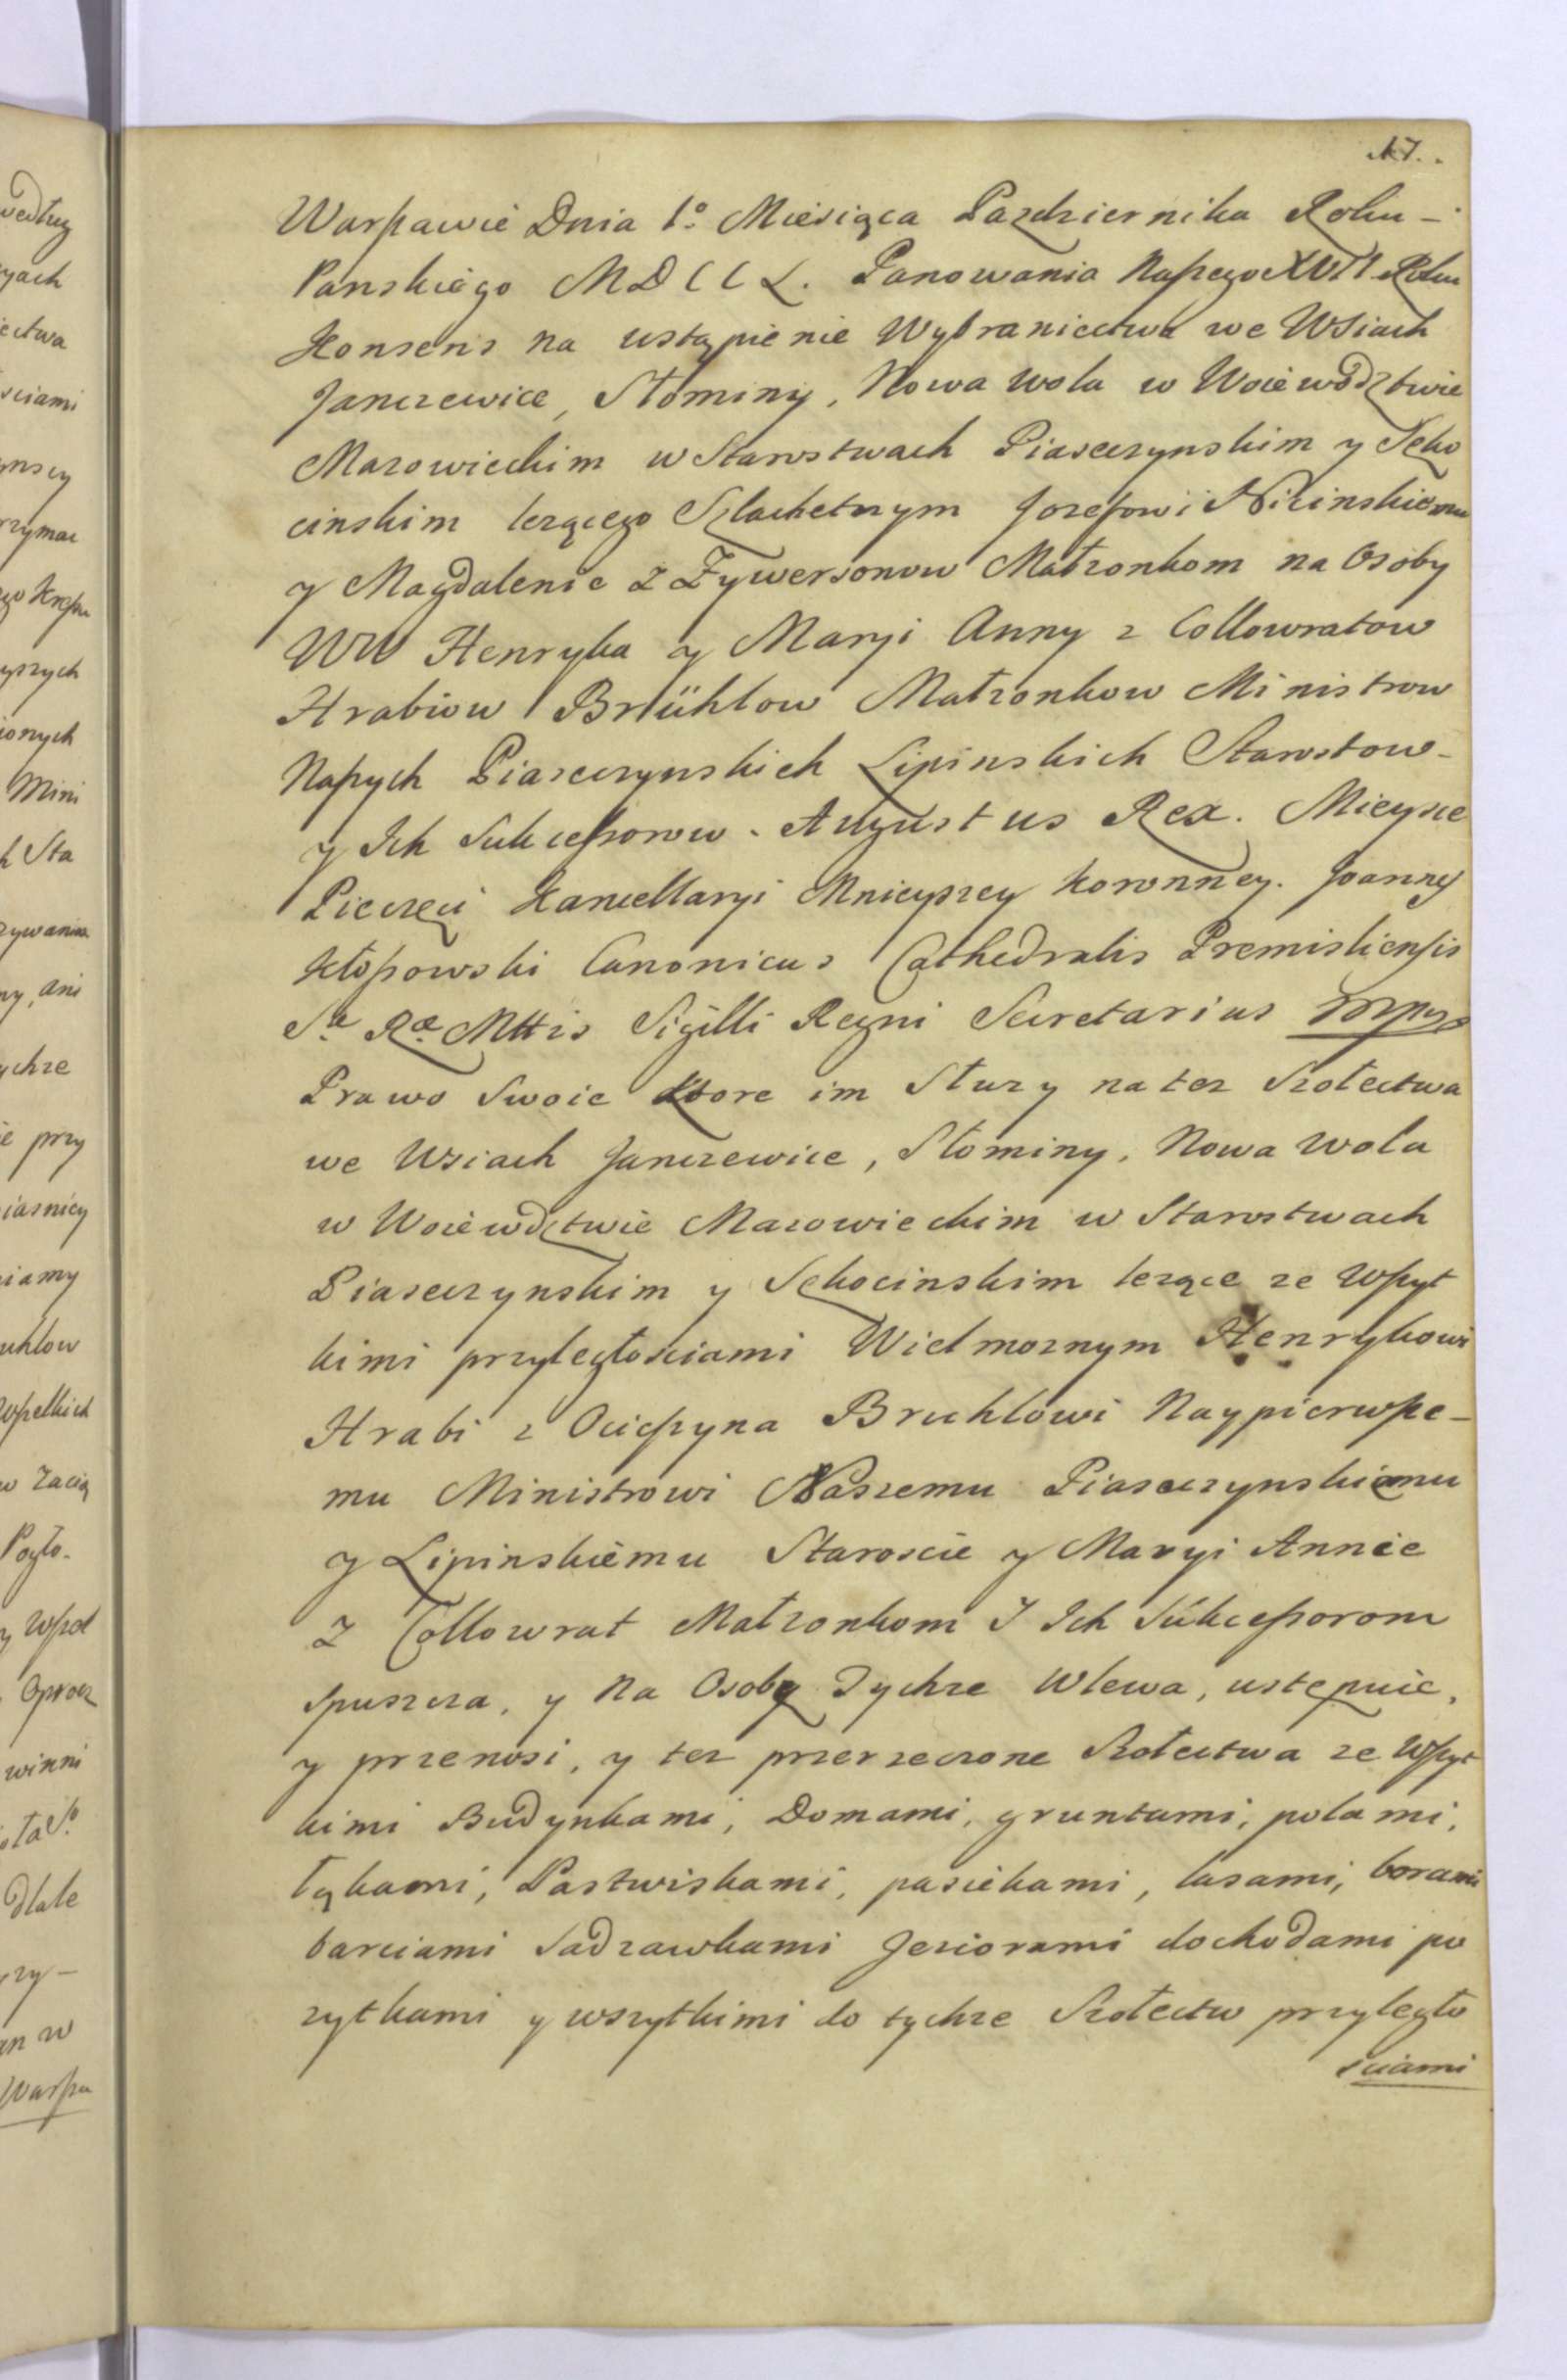 17.
Warszawie Dnia 1º Miesiąca Pazdziernika Roku –
Panskiego MDCCL. Panowania Naszego XVII Roku
Konsens na ustąpienie Wybraniectwa we Wsiach
Janczewice, Słominy, Nowa Wola w Woiewodztwie
Mazowieckim w Starostwach Piaseczynskim y Sęko
cinskim lezącego Szlachetnym Jozefowi Nizinskiemu
y Magdalenie z Zywersonow Małzonkom na Osoby
WW Henryka y Maryi Anny z Collowratow
Hrabiow Brühlow Małzonkow Ministrow
Naszych Piaseczynskich Lipinskich Starostow –
y Ich Sukcessorow. Augustus Rex. Mieysce
Pieczęci Kancellaryi Mnieyszey Koronney. Joannes
Kłossowski Canonicus Cathedralis Premisliensis
Sæ Ræ Mttis Sigilli Regni Secretarius mpp
Prawo Swoie ktore im Słuzy na tez Szołectwa
we Wsiach Janczewice, Słominy, Nowa Wola
w Woiewdztwie Mazowieckim w Starostwach
Piaseczynskim y Sękocinskim lezące ze Wszyt
kimi przyległosciami Wielmoznym Henrykowi
Hrabi z Ocieszyna Bruhlowi Naypierwsze –
mu Ministrowi Naszemu Piaseczynskiemu
y Lipinskiemu Staroscie y Maryi Annie
z Collowrat Małzonkom I Ich Sukcessorom
spuszcza, y na Osoby Tychze Wlewa, ustępuie,
y przenosi, y tez przerzeczone Szołectwa ze Wszyt
kimi Budynkami, Domami, gruntami, polami,
łąkami, Pastwiskami, pasiekami, lasami, borami
barciami Sadzawkami Jeziorami dochodami po
zytkami y wszytkimi do tychze Szołectw przyległo
sciami